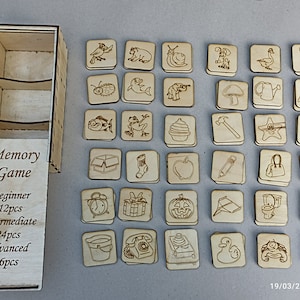 Memory
Game
Beginner
12pcs
Intermediate
24pcs
Advanced
36pcs
19/03/2